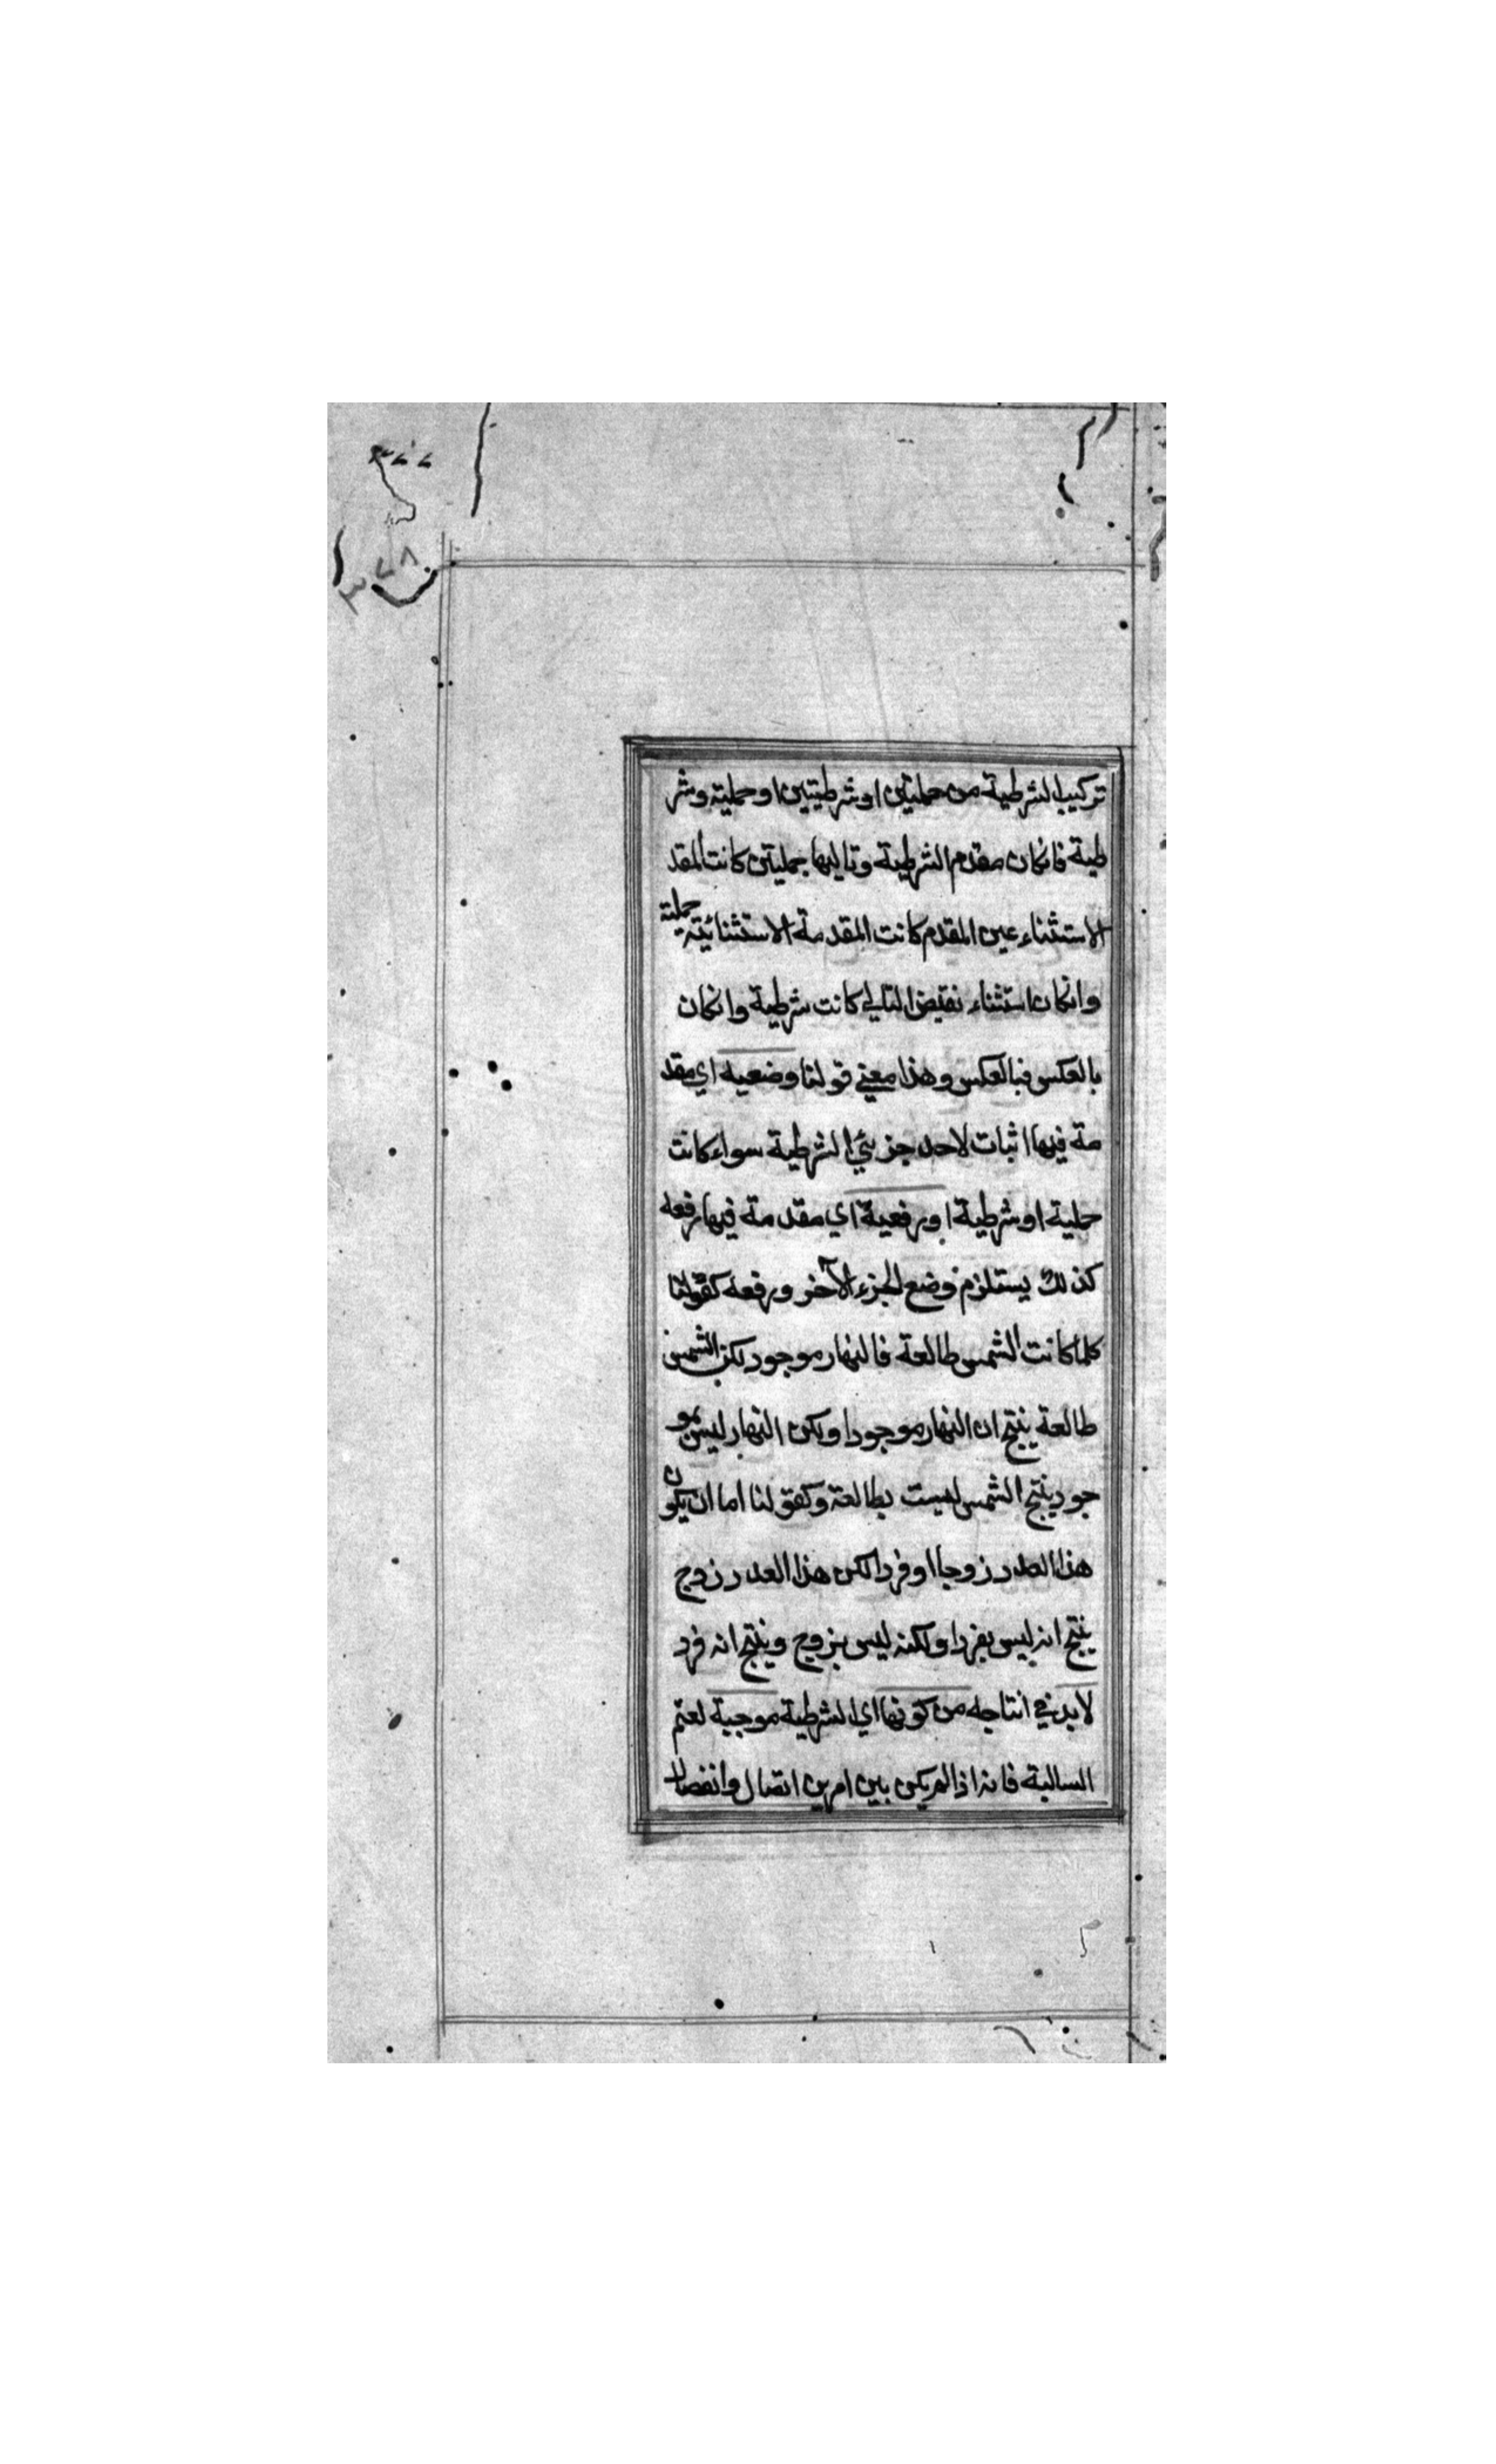 ٣٧٧
٣٧٨
تركيب الشرطية من حمليتين او شرطيتين او حملية وشر
طية فانكان مقدم الشرطية وتاليها حمليتين كانت المقد
الاستثناء عين المقدم كانت المقدمة الاستثنائية حملية
وانكان استثناء نقيض التالي كانت شرطية وانكان
بالعكس فبالعكس وهذا معنى قولنا وضعيه اي مقد
مة فيها اثبات لاحد جزئي الشرطية سواء كانت
حملية او شرطية او رفعية اي مقدمة فيها رفعه
كذلك يستلزم وضع الجزء الآخر ورفعه كقولنا
كلما كانت الشمس طالعة فالنهار موجود لكن الشمس
طالعة ينتج ان النهار موجودا ولكن النهار ليس بمو
جود ينتج الشمس ليست بطالعة وكقولنا اما ان يكون
هذا العدد زوجا او فردا لكن هذا العدد زوج
ينتج انه ليس بفرد او لكنه ليس بزوج وينتج انه فرد
لابد في انتاجه من كونها اي الشرطية موجبة لعقم
السالبة فانه اذا لم يكن بين امرين اتصال وانفصال